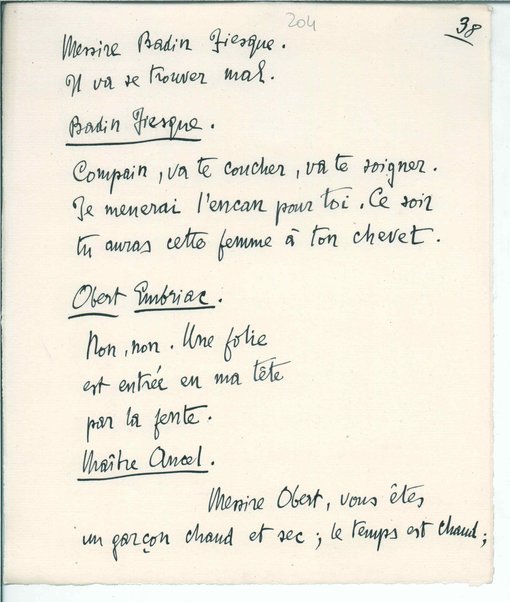 204
38
Messire Badin Fiesque.
Il va se trouver mal.
Badin Fiesque.
Compain, va te coucher, va te soigner.
Je menerai l'encan pour toi. Ce soir
tu auras cette femme à ton chevet.
Obert Embriac.
Non, non. Une folie
est entrée en ma tête
par la fente.
Maître Ancel.
Messire Obert, vous êtes
un garçon chaud et sec ; le temps est chaud ;